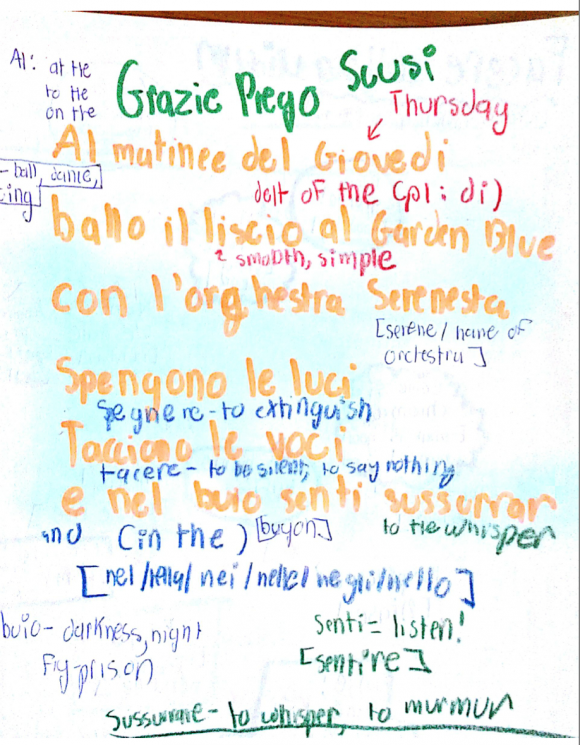 Al: at the
to the
on the
Grazie Prego Scusi
Thursday
Al matinee del Giovedi
- ball, dance,
of the (pl: di)
ballo il liscio al Garden Blue
2 smooth, simple
con l'orghestra Serenesta
[serene / name of
orchestra]
Spengono le luci
Spegnere - to extinguish
Tacciono le voci
tacere - to be silent, to say nothing
e nel buio senti sussurrar
and (in the) [buyon] to the whisper
[nel / nella / nei / nelle / negli / nello]
buio - darkness, night
fig prison
senti = listen!
[senti're]
sussurrare - to whisper, to murmur